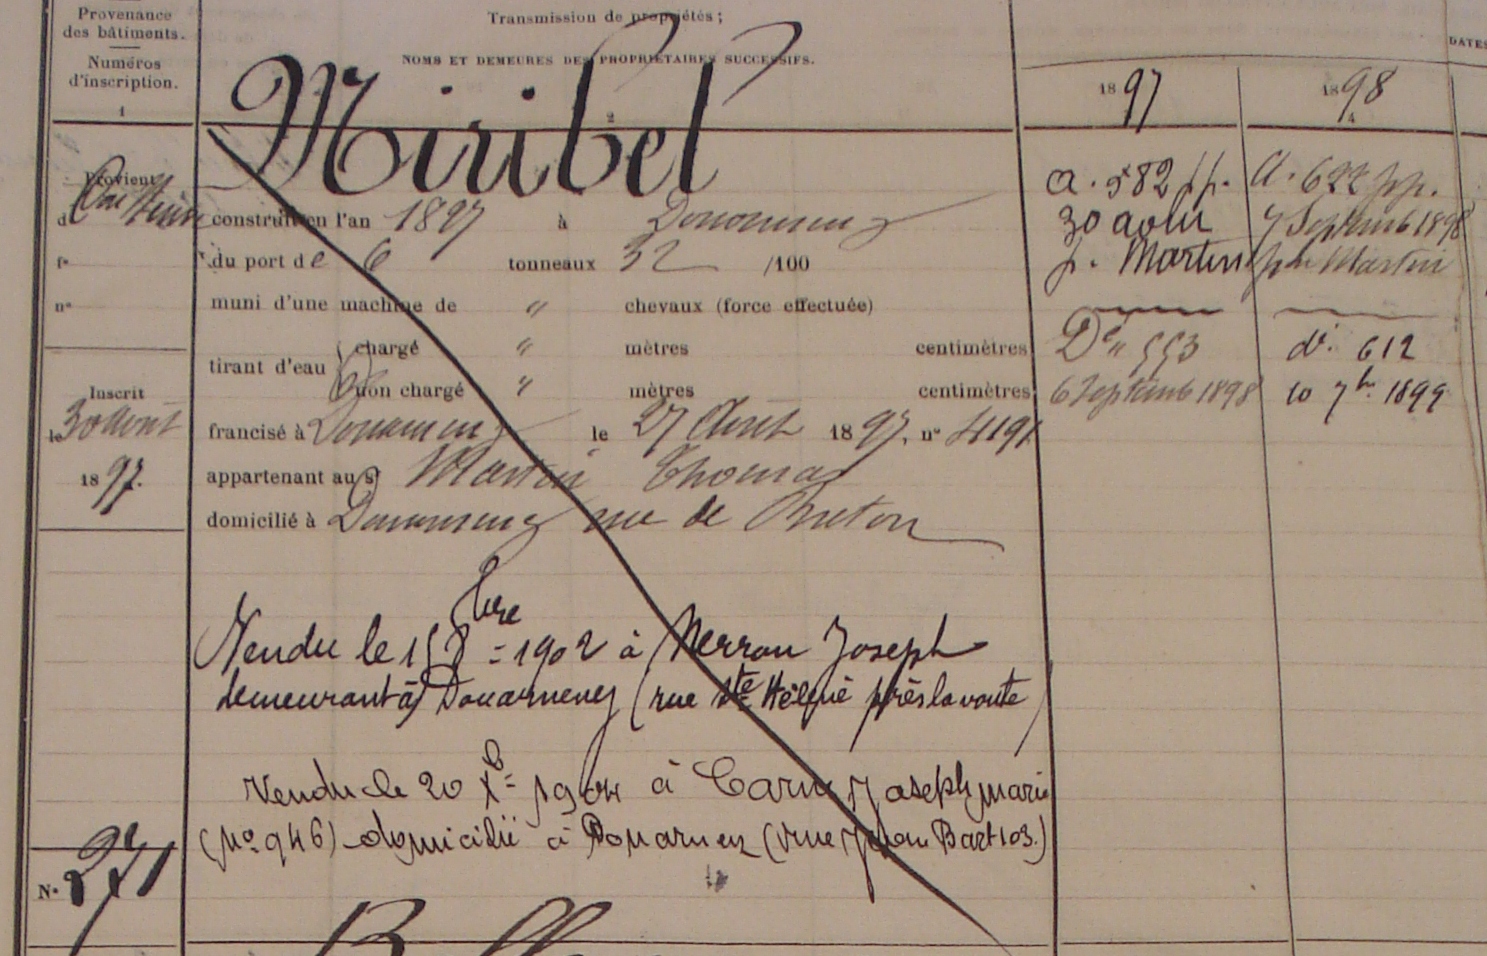 Provenance
des bâtiments.
Numéros
d'inscription.
1
Transmission de propriétés ;
NOMS ET DEMEURES DES PROPRIÉTAIRES SUCCESSIFS.
2
1897
1898
4
DATES
Miribel
Provient
d
construit en l'an 1897 à Douarnenez
fo
du port de 6 tonneaux 32 /100
no
muni d'une machine de " chevaux (force effectuée)
tirant d'eau
chargé " mètres centimètres
non chargé " mètres centimètres
Inscrit
le 30 Août
1897.
francisé à Douarnenez le 27 Août 1897. no 4191
appartenant au sr Martin Thomas
domicilié à Douarnenez rue de Breton
a. 582 pp.
30 août
p. Martin
Do 553
6 Septemb 1898
a. 622 pp.
7 Septemb 1898
par Martin
do. 612
10 7bre. 1899
Vendu le 15 8bre = 1902 à Joseph
demeurant à Douarnenez (rue Ste Hélène près la voute)
Vendu le 20 Xb= 1904 à Joseph marie
(No 946) domicilié à Douarnez (rue Jean Bart 103.)
No 271